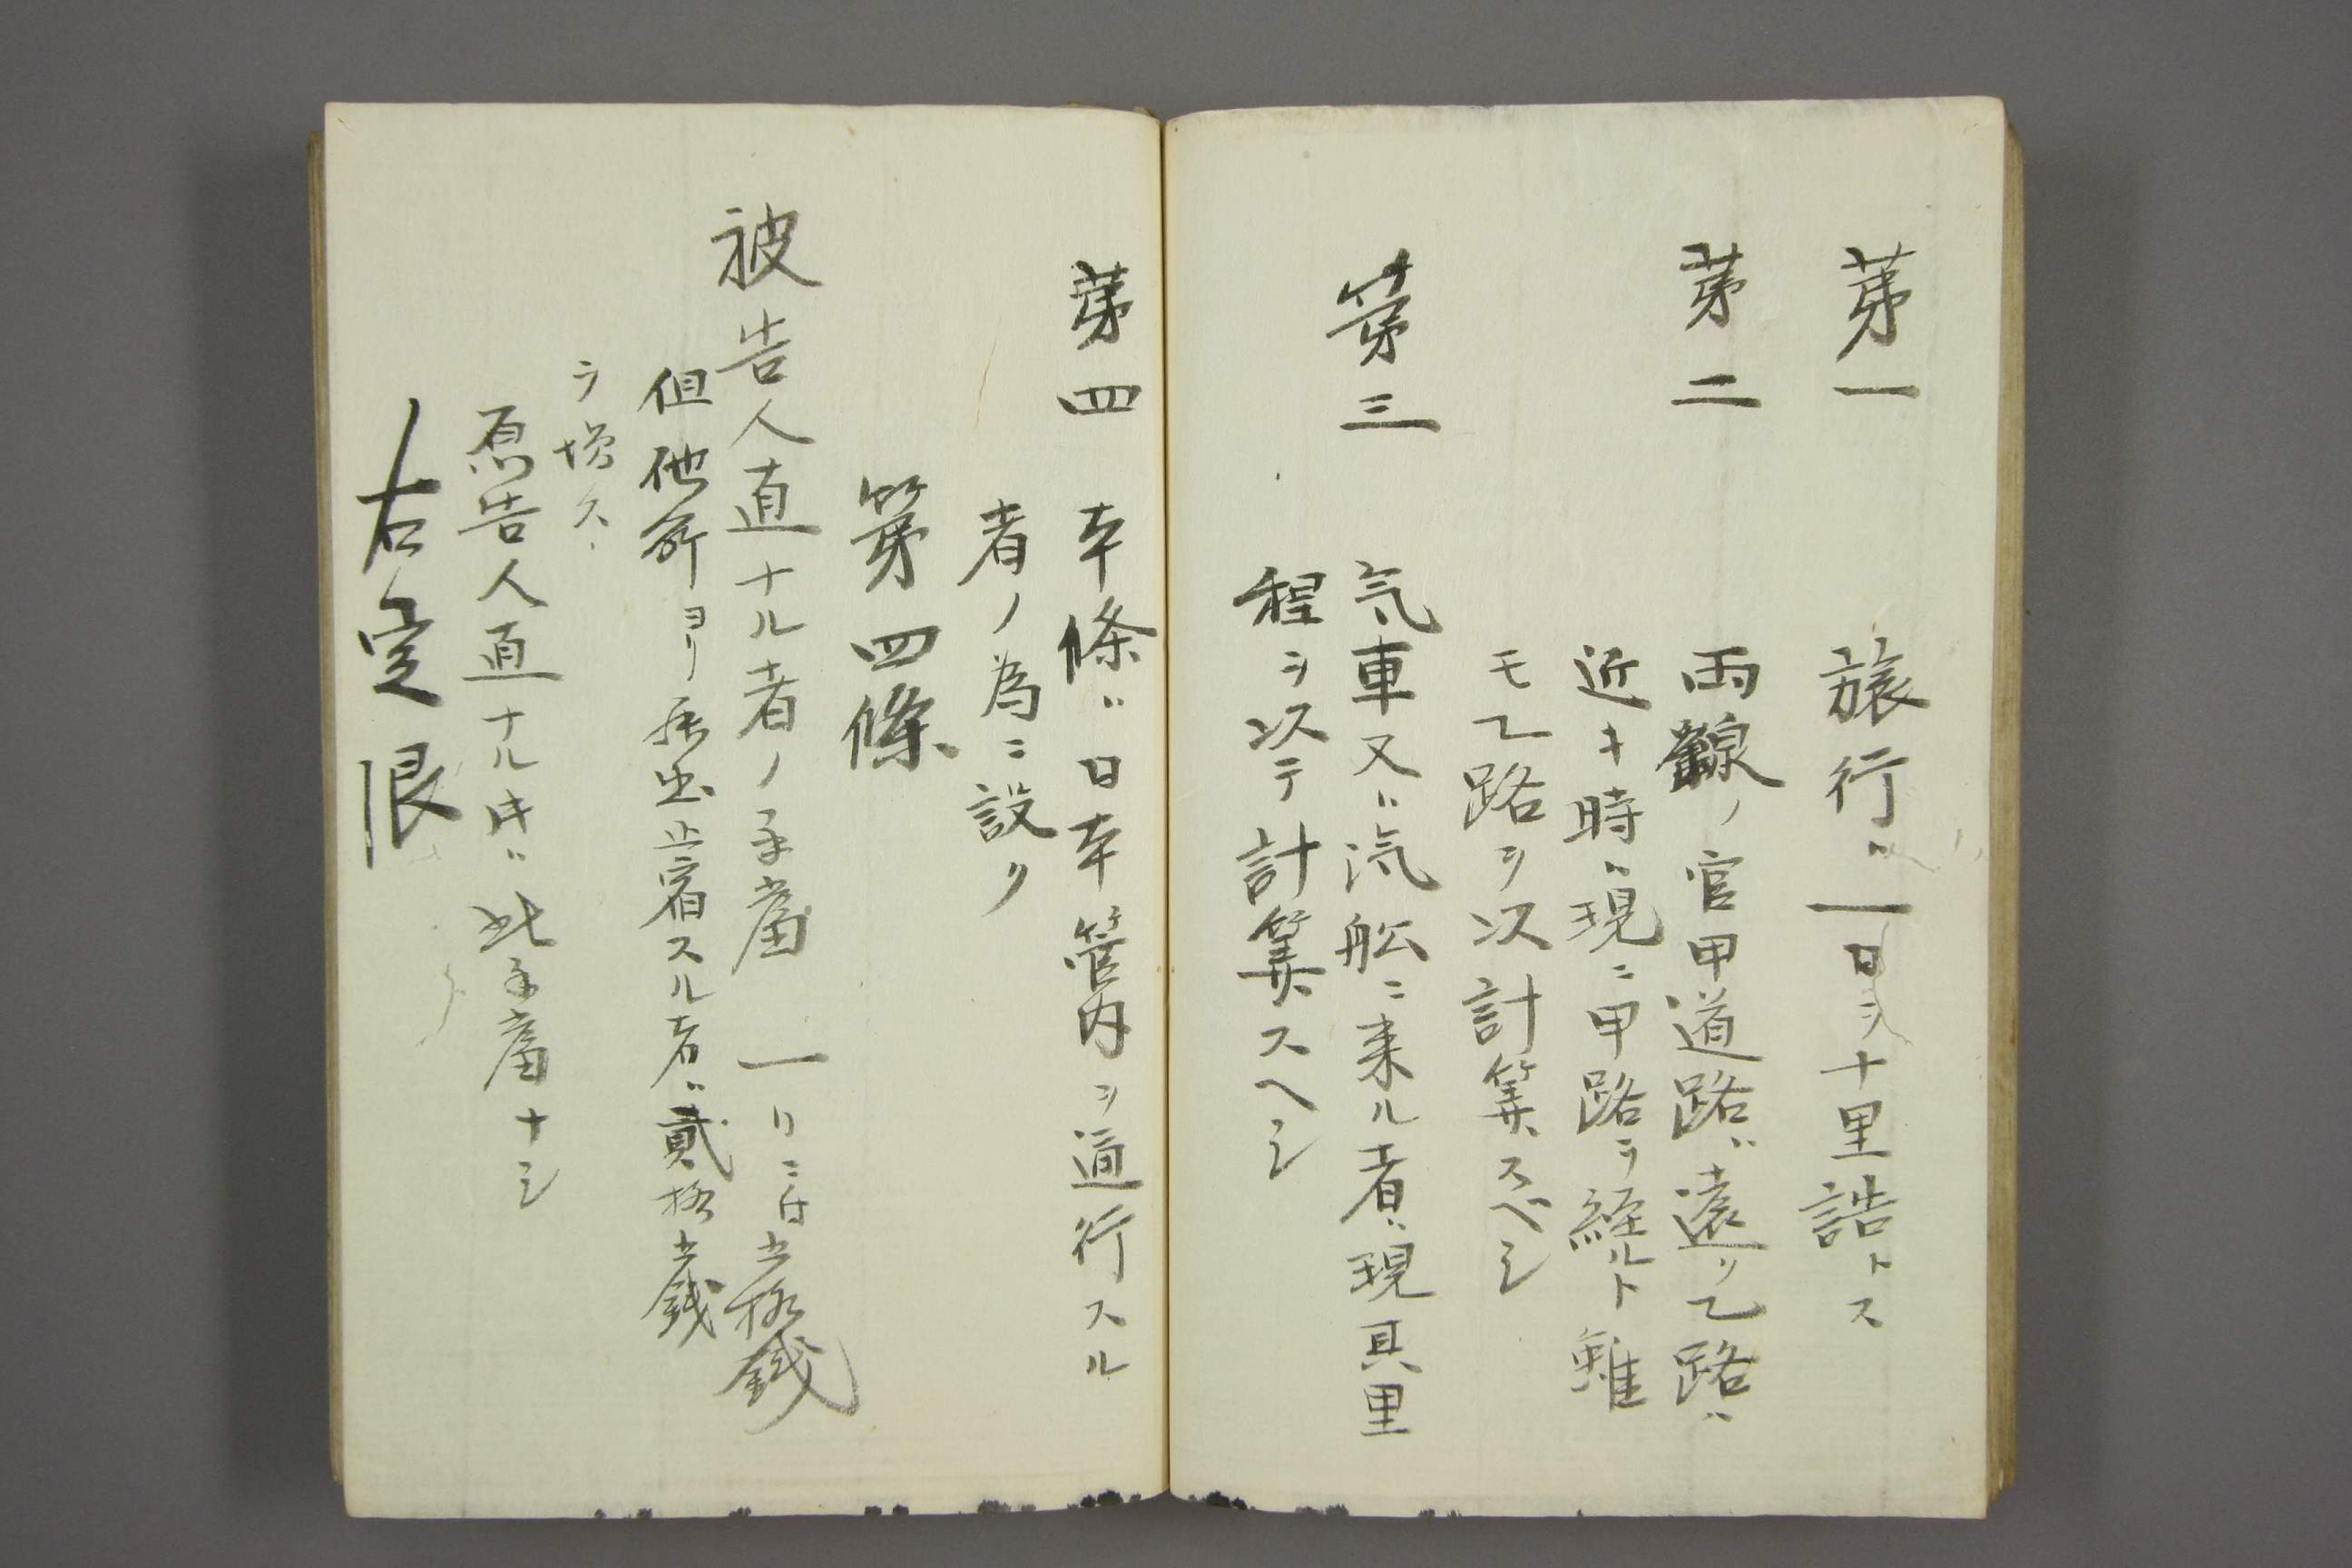 第一　旅行ハ一日ヲ十里詰トス
第二　両線ノ官甲道路ハ遠ク乙路ハ
近キ時ハ現ニ甲路ヲ経ルト雖
モ乙路ヲ以計算スベシ
第三　気車又ハ汽船ニ乗ル者ハ現真里
程ヲ以テ計算スヘシ
第四　本條ハ日本管内ヲ通行スル
者ノ為ニ設ク
第四條
被告人直ナル者ノ手當一日ニ付五拾銭
但他所ヨリ呼出止宿スル者ハ貳拾五銭
ヲ増ス
原告人直ナル片ハ此手當ナシ
右定限